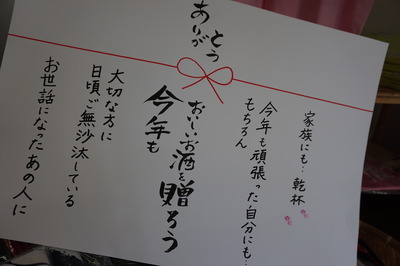 ありがとう
今年も
おいしいお酒を贈ろう
大切な方に
日頃ご無沙汰している
お世話になったあの人に
もちろん
今年も頑張った自分にも…
家族にも…乾杯